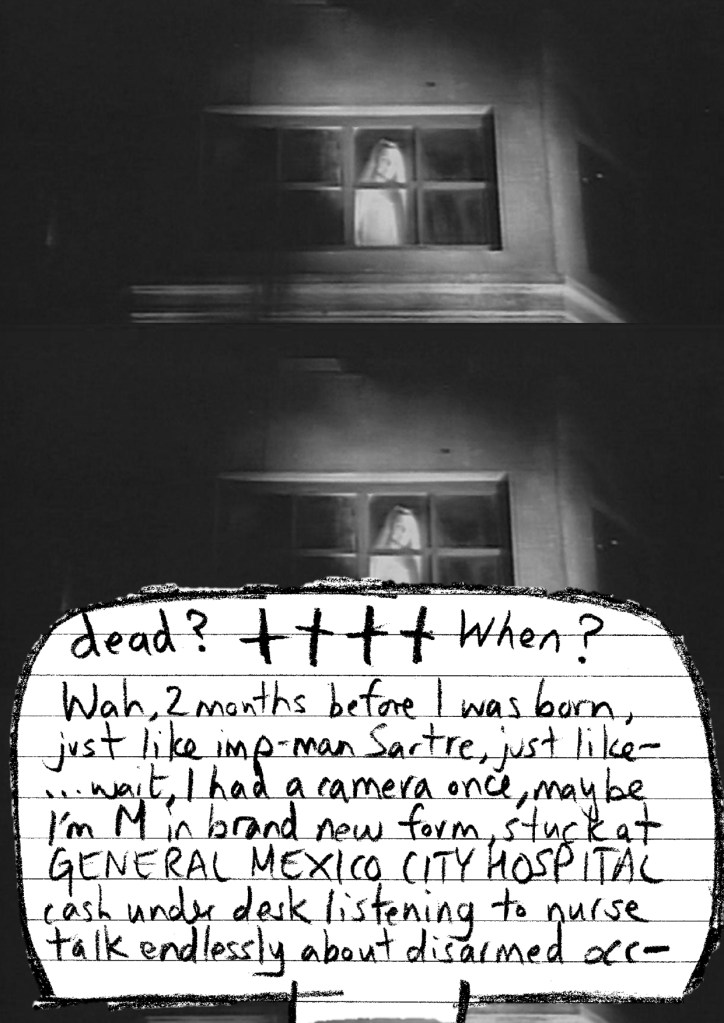 dead? ++++ When?
Wah, 2 months before I was born,
just like imp-man Sartre, just like-
...wait, I had a camera once, maybe
I'm M in brand new form, stuck at
GENERAL MEXICO CITY HOSPITAL
cash under desk listening to nurse
talk endlessly about disarmed occ-